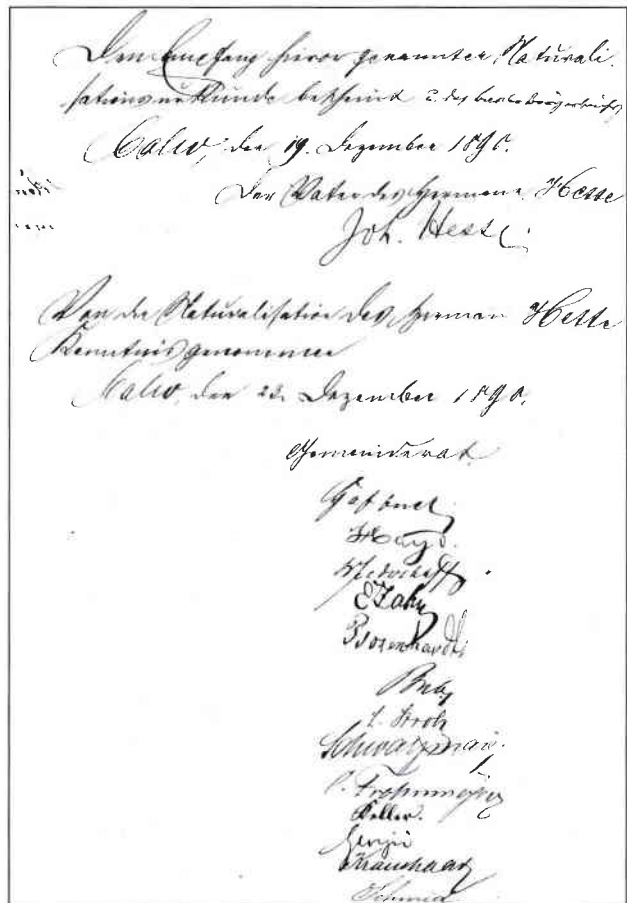 Den Empfang hievor genannter Naturali-
sationsurkunde bescheint u. des
Calw, den 19. Dezember 1890.
Der Vater des Hermann Hesse
Joh. Hesse
Von der Naturalisation des Herman Hesse
Kenntnis genommen
Calw, den 23. Dezember 1890.
Gemeinderat
EZahn
Bozenhardt
L. Stroh
Schwarzmaier
Keller.
Georgii
Kraushaar
Schmid